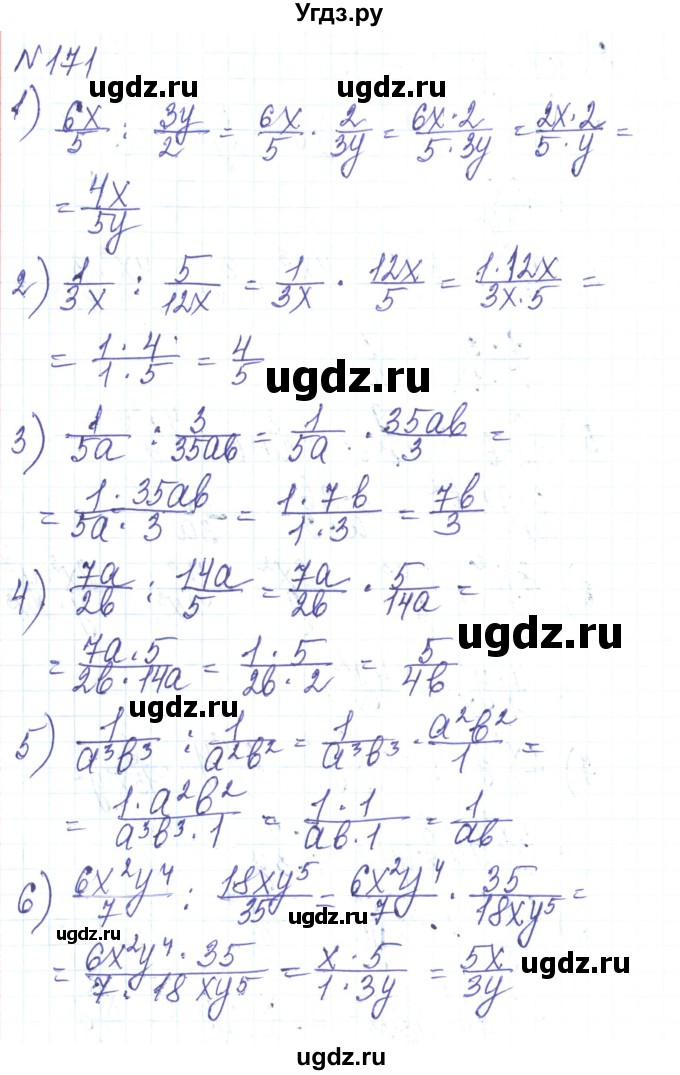 Угдз.ру
№171
ugdz.ru ugdz.ru
1) 6x/5 : 3y/2 = 6x/5 · 2/3y = 6x·2/5·3y = 2x·2/5·y =
= 4x/5y
2) 1/3x : 5/12x = 1/3x · 12x/5 = 1·12x/3x·5 =
= 1·4/1·5 = 4/5
ugdz.ru
3) 1/5a : 3/35ab = 1/5a · 35ab/3 =
= 1·35ab/5a·3 = 1·7b/1·3 = 7b/3
4) 7a/2b : 14a/5 = 7a/2b · 5/14a =
ugdz.ru
= 7a·5/2b·14a = 1·5/2b·2 = 5/4b
ugdz.ru
5) 1/a³b³ : 1/a²b² = 1/a³b³ · a²b²/1 =
= 1·a²b²/a³b³·1 = 1·1/ab·1 = 1/ab
6) 6x²y⁴/7 : 18xy⁵/35 = 6x²y⁴/7 · 35/18xy⁵ =
ugdz.ru
ugdz.ru
= 6x²y⁴·35/7·18xy⁵ = x·5/1·3y = 5x/3y
ugdz.ru
ugdz.ru
ugdz.ru